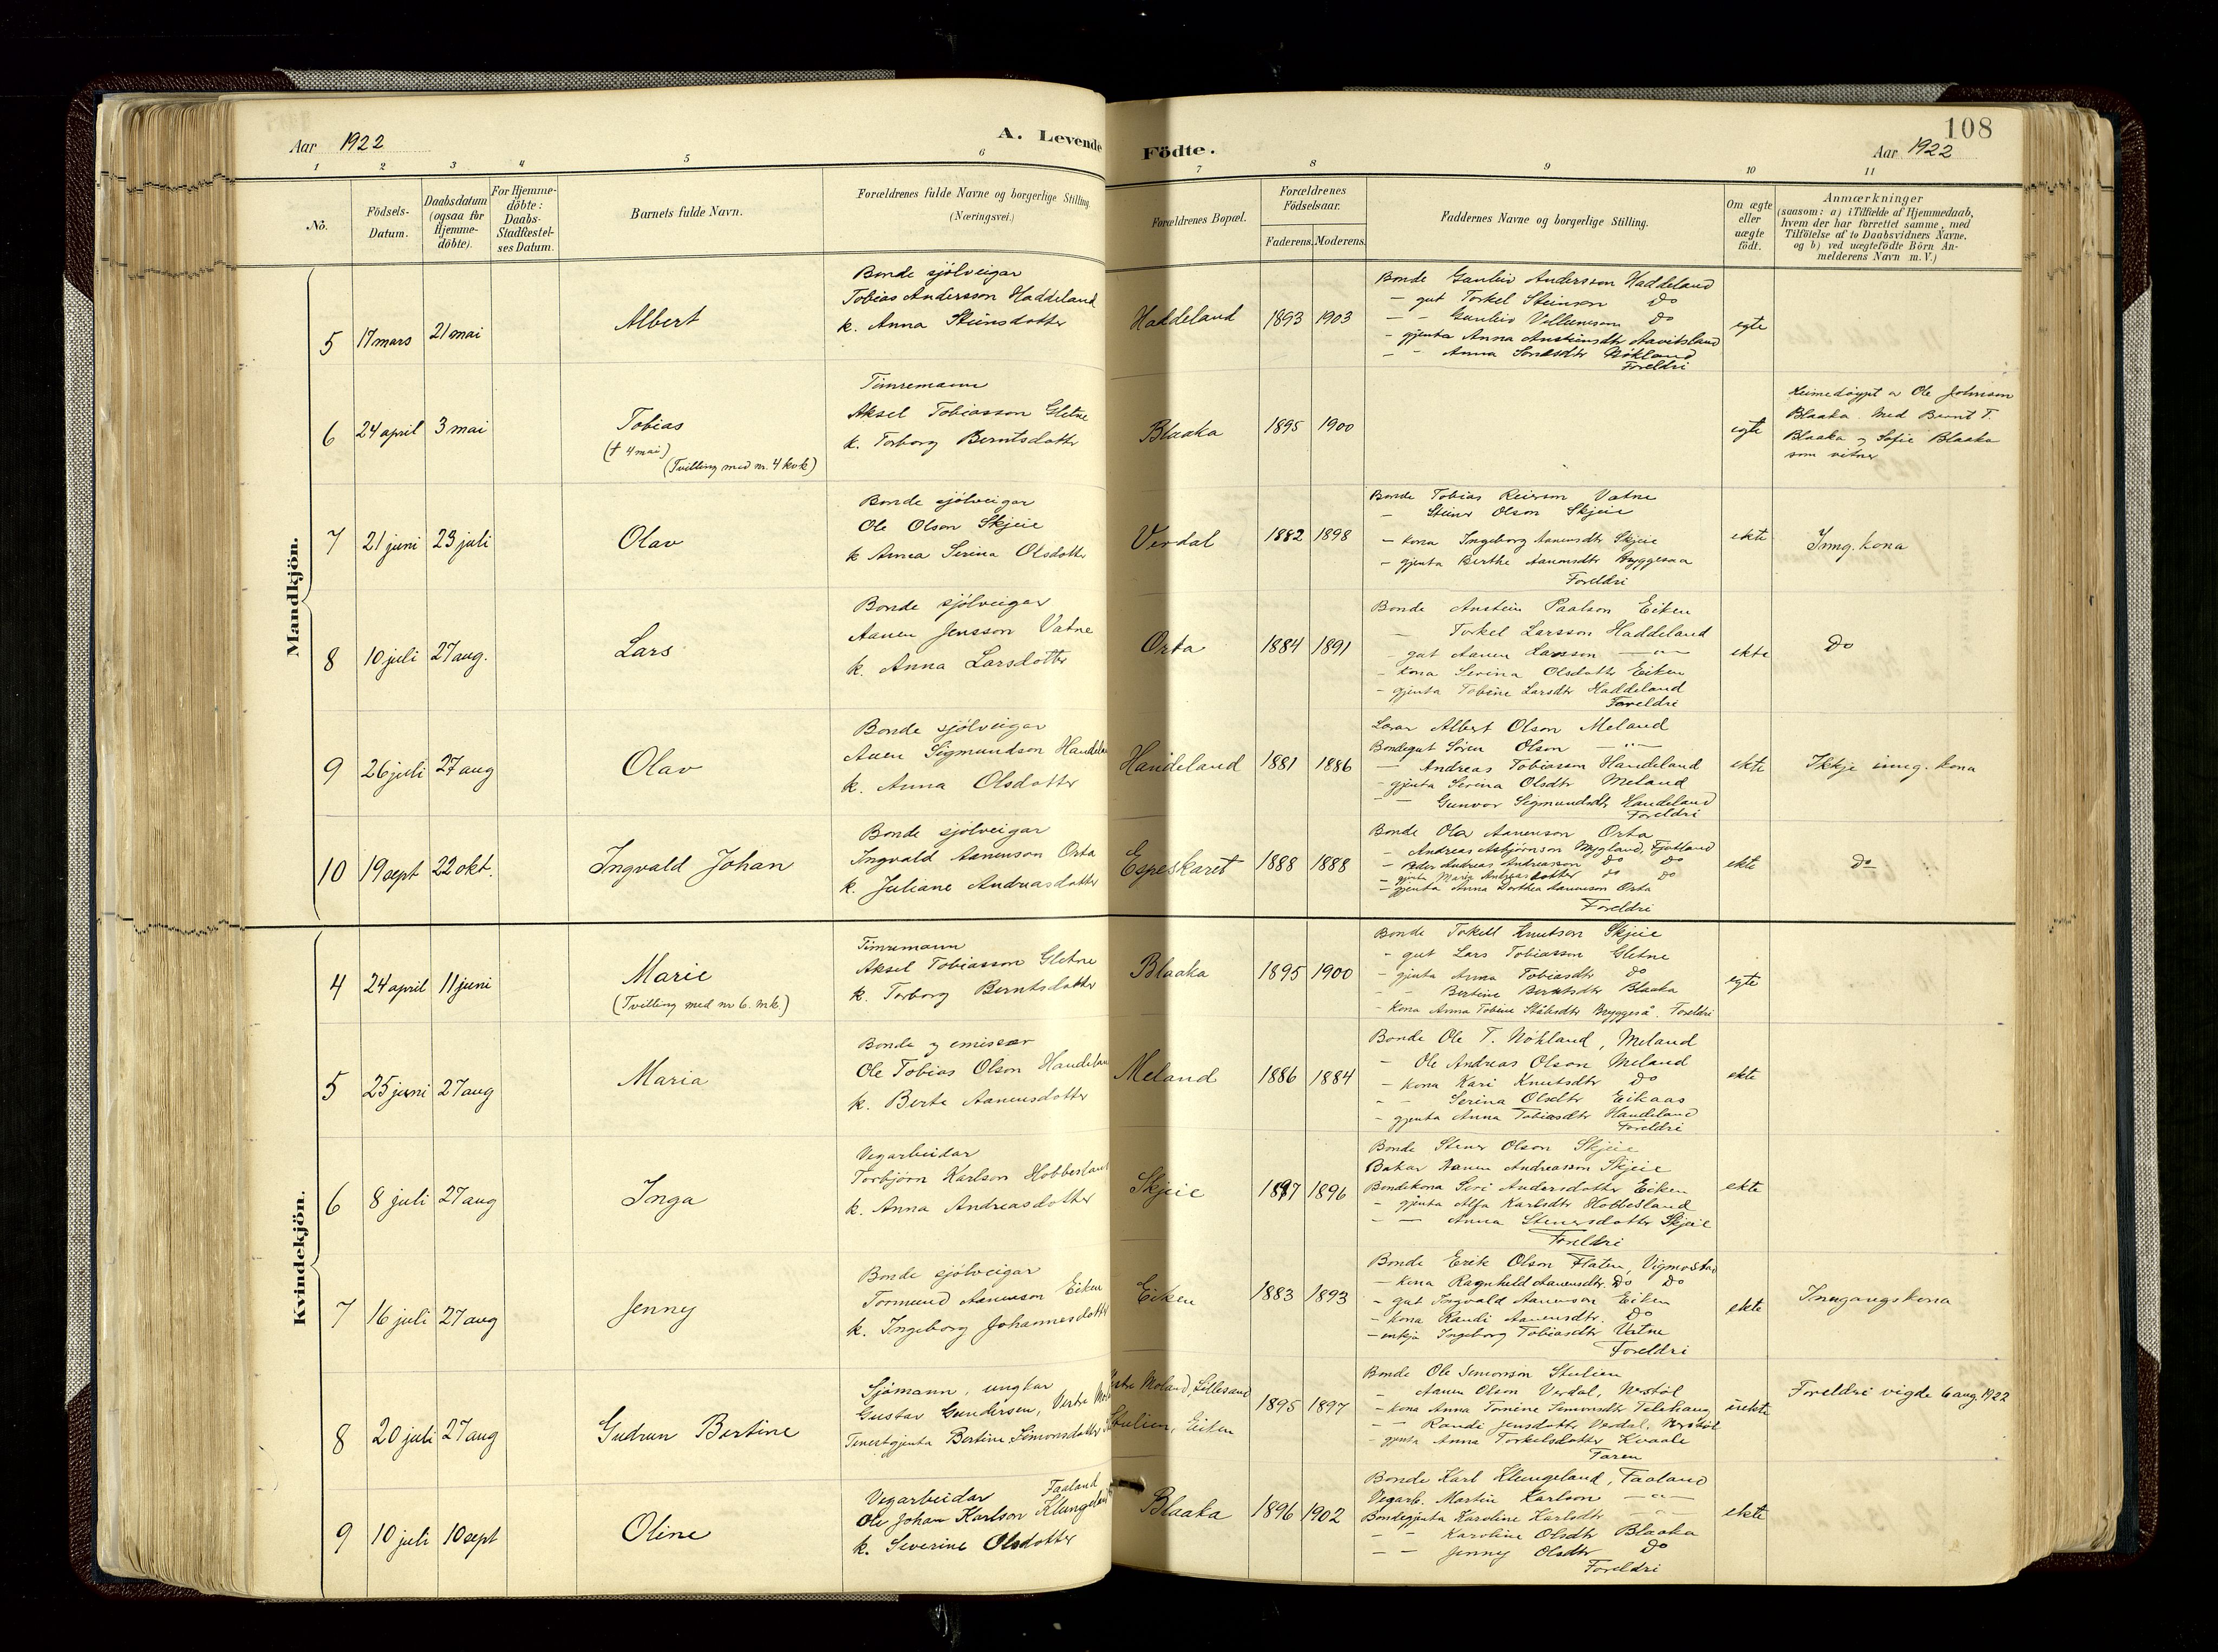 Aar 1922
A. Levende Födte.
108
Aar 1922
1 2 3 4 5 6 7 8 9 10 11
No.
Födsels-
Datum.
Daabsdatum
(ogsaa for
Hjemme-
döbte).
For Hjemme-
döbte:
Daabs-
Stadfæstel-
ses Datum.
Barnets fulde Navn.
Forældrenes fulde Navne og borgerlige Stilling.
(Næringsvei.)
Forældrenes Bopæl.
Forældrenes
Födselsaar.
Faderens. Moderens.
Faddernes Navne og borgerlige Stilling.
Om ægte
eller
uægte
födt.
Anmærkninger
(saasom: a) i Tilfælde af Hjemmedaab,
hvem der har forrettet samme, med
Tilföielse af to Daabsvidners Navne,
og b) ved uægtefödte Börn An-
melderens Navn m. V.)
Mandkjön.
5 17 mars 21 mai
Albert
Bonde sjölveigar
Tobias Andersson Haddeland
k. Anna Steinsdotter
Haddeland 1893 1903
Bonde Gunleiv Andersson Haddeland
- gut Torkel Steinson Do
- - Gunleiv Do
- gjenta Anna Austeinsdtr Aavitsland
- - Anna Nökland
Foreldri
egte
6 24 april 3 mai
Tobias
(† 4 mai)
(Tvilling med nr. 4 kvk)
Timremann
Aksel Tobiasson Gletne
k. Torborg Berntsdotter
Blaaka 1895 1900
egte
Heimedöypt av Ole Johnson
Blaaka. Med Bernt T.
Blaaka og Sofie Blaaka
som vitner
7 21 juni 23 juli
Olav
Bonde sjölveigar
Ole Olson Skjeie
k Anna Serina Olsdotter
Verdal 1882 1898
Bonde Tobias Reierson Vatne
- Steinar Olson Skjeie
- kona Ingeborg Aanensdtr Skjeie
- gjenta Berthe Aanensdtr Bryggesaa
Foreldri
ekte
Inng. kona
8 10 juli 27 aug.
Lars
Bonde sjölveigar
Aanen Jensson Vatne
k. Anna Larsdotter
Orta 1884 1891
Bonde Austein Paalson Eiken
- Torkel Larsson Haddeland
- gut Aanen Larsson — " —
- kona Serina Olsdotter Eiken
- gjenta Tobine Larsdtr Haddeland
Foreldri
ekte
Do
9 26 juli 27 aug
Olav
Bonde sjölveigar
Anen Sigmundson Handeland
k. Anna Olsdotter
Handeland 1881 1886
Lærar Albert Olson Meland
Bondegut Sören Olson — " —
- Andreas Tobiasson Handeland
- gjenta Serina Olsdtr Meland
- - Gunvor Sigmundsdtr Handeland
Foreldri
ekte
Ikkje inng. kona
10 19 sept 22 okt.
Ingvald Johan
Bonde sjölveigar
Ingvald Aanenson Orta
k. Juliane Andreasdotter
Espeskaret 1888 1888
Bonde Ola Aanenson Orta
- Andreas Asbjörnson Mygland, Fjotland
- Peder Andreas Andreasson do do
- gjenta Marie Andreasdotter do do
- gjenta Anna Dorthea Aanenson Orta
Foreldri
ekte
do
Kvindekjön.
4 24 april 11 juni
Marie
(Tvilling med nr 6. mk.)
Timremann
Aksel Tobiasson Gletne
k. Torborg Berntsdotter
Blaaka 1895 1900
Bonde Torkell Knutson Skjeie
- gut Lars Tobiasson Gletne
- gjenta Anna Tobiasdtr Do
- - Bertine Berntsdtr Blaaka
- kona Anna Tobine Bryggeså. Foreldri
egte
5 25 juni 27 aug
Maria
Bonde og emissær
Ole Tobias Olson Handeland
k. Berte Aanensdotter
Meland 1886 1884
Bonde Ole T. Nökland, Meland
- Ole Andreas Olson Meland
- kona Kari Knutsdtr Do
- - Serina Olsdtr Eikaas
- gjenta Anna Tobiasdtr Handeland
Foreldri
ekte
6 8 juli 27 aug
Inga
Vegarbeidar
Torbjörn Karlson Hobbesland
k. Anna Andreasdotter
Skjeie 1897 1896
Bonde Stener Olson Skjeie
Bakar Aanen Andreasson Skjeie
Bondekona Siri Andersdotter Eiken
- gjenta Alfa Karlsdtr Hobbesland
- — Anna Stenersdotter Skjeie
Foreldri
ekte
7 16 juli 27 aug
Jenny
Bonde sjölveigar
Tormund Aanenson Eiken
k. Ingeborg Johannesdotter
Eiken 1883 1893
Bonde Erik Olson Flaten, Vigmostad
- kona Ragnhild Aanensdtr. Do Do
- gut Ingvald Aanenson Eiken
- kona Randi Aanensdtr. Do
- enkja Ingeborg Tobiasdtr Vatne
Foreldri
ekte
Inngangskona
8 20 juli 27 aug
Gudrun Bertine
Sjömann, ungkar
Gustav Gundersen, Vestre Moland, Lillesand
Tenestgjenta Bertine Simonsdotter Stulien, Eiken
1895 1897
Bonde Ole Simonson Stulien
- Aanen Olson Verdal, Nerstöl
- kona Anna Tomine Simonsdtr
- - Randi Jensdotter Verdal, Nerstöl
- gjenta Anna Torkelsdotter Kvaale
Faren
uekte
Foreldri vigde 6 aug. 1922
9 10 juli 10 sept
Oline
Vegarbeidar Faaland
Ole Johan Karlson Klungeland
k. Severine Olsdotter
Blaaka 1896 1902
Bonde Karl Klungeland, Faaland
Vegarb. Martin Karlson — " —
Bondegjenta Karoline Karlsdtr — " —
- - Karoline Olsdtr Blaaka
- - Jenny Olsdtr Do
Foreldri
ekte